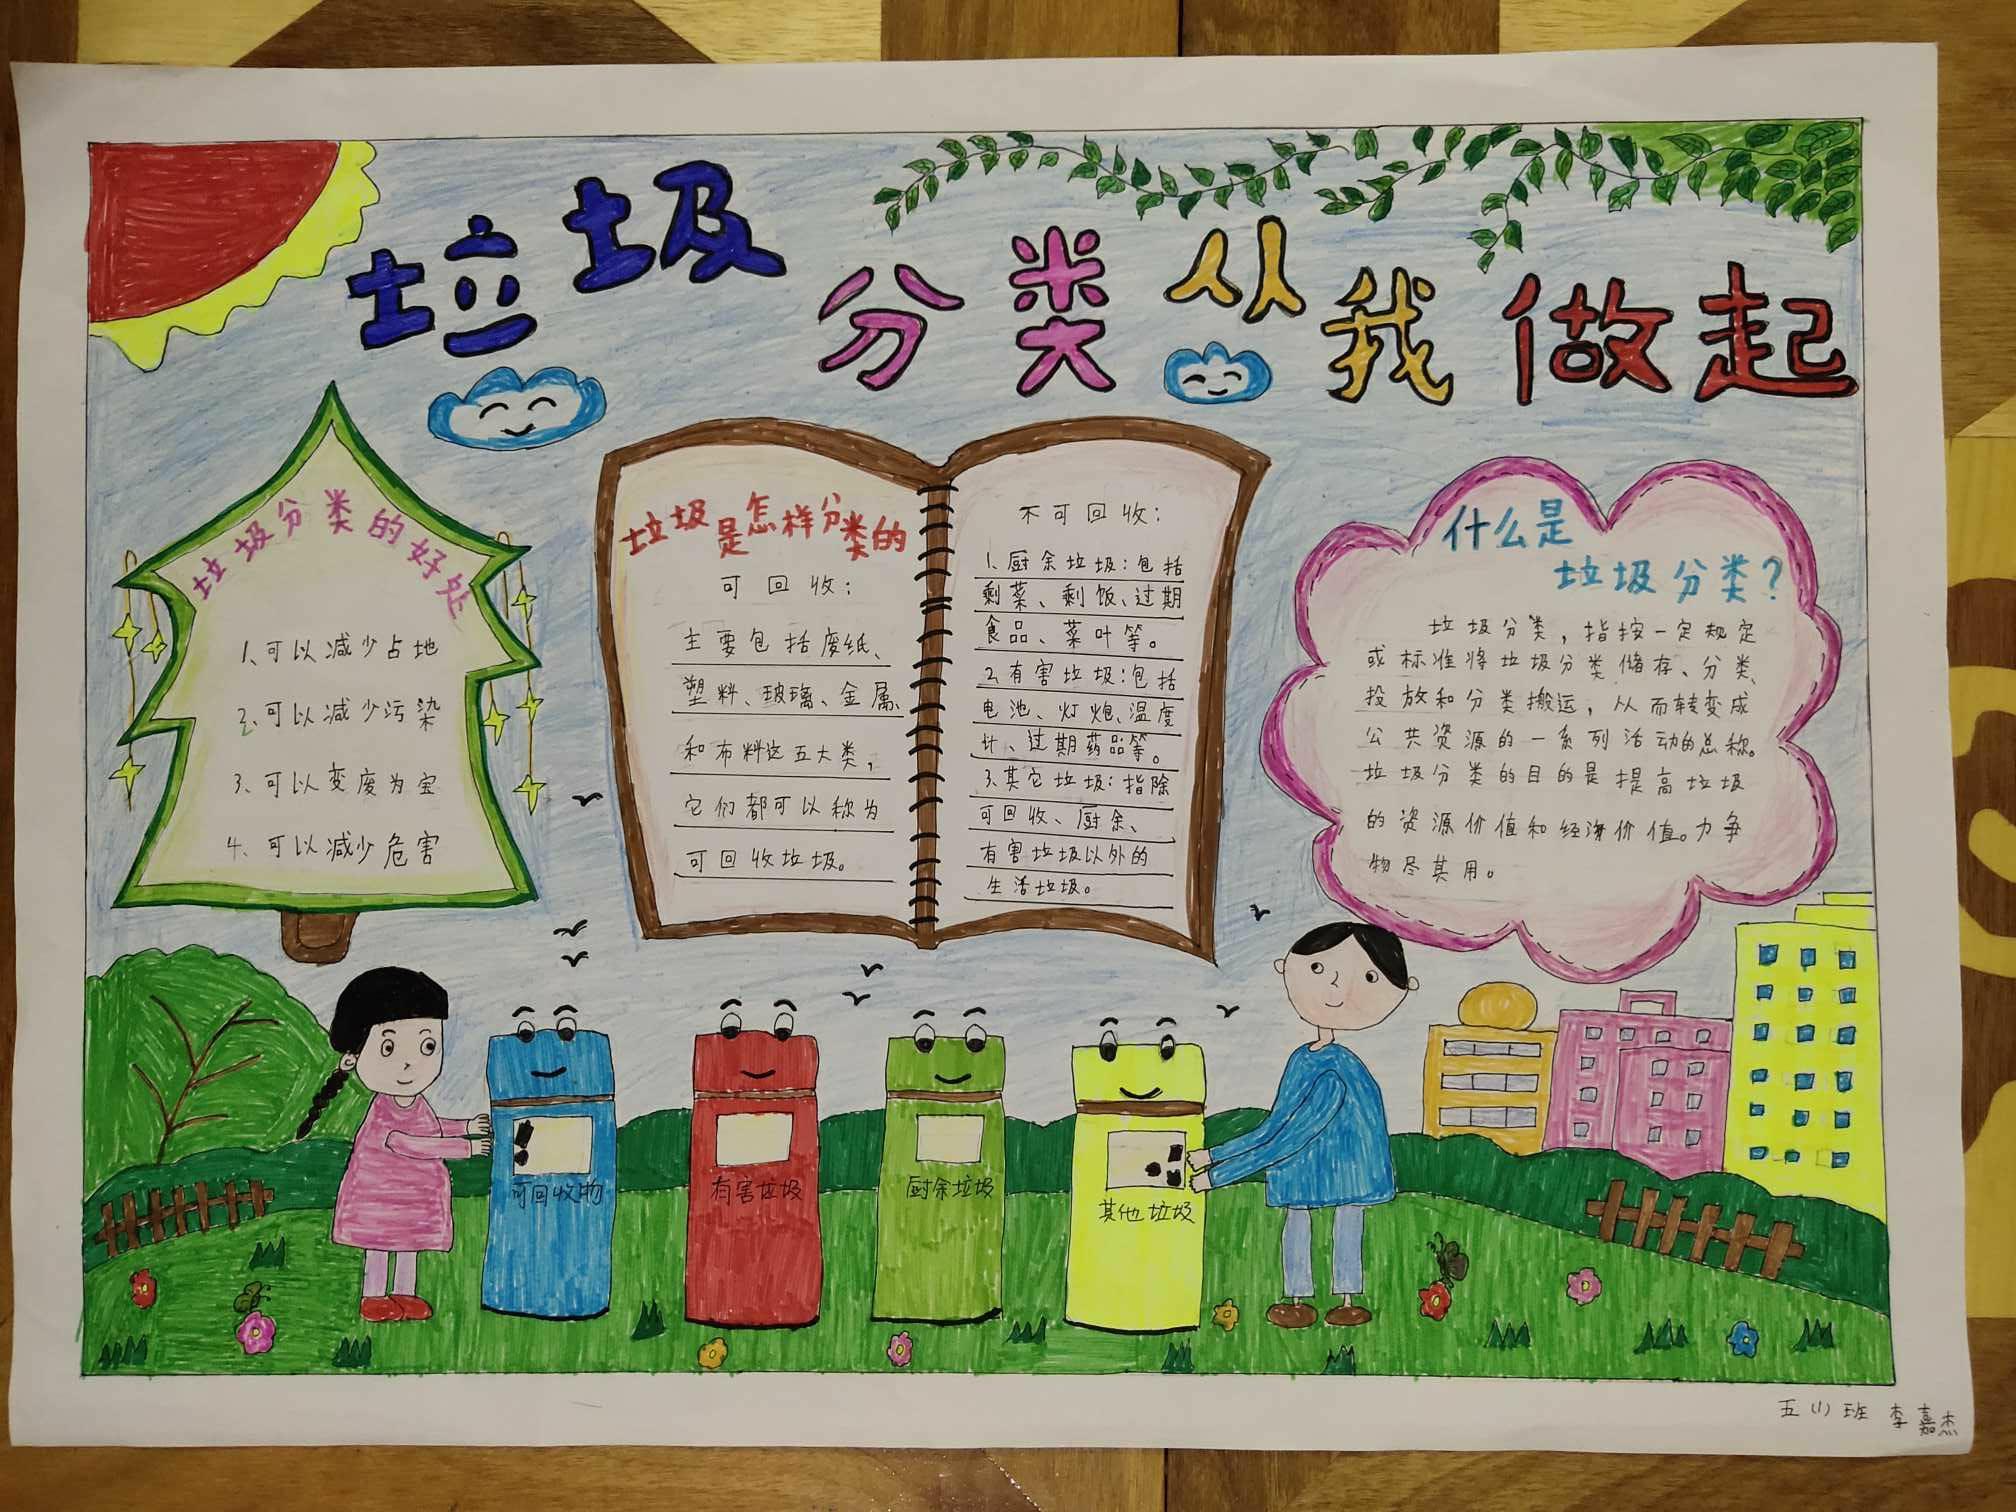 垃圾分类从我做起
垃圾分类的好处
1、可以减少占地
2、可以减少污染
3、可以变废为宝
4、可以减少危害
垃圾是怎样分类的
可回收：
主要包括废纸、
塑料、玻璃、金属、
和布料这五大类，
它们都可以称为
可回收垃圾。
不可回收：
1、厨余垃圾：包括
剩菜、剩饭、过期
食品、菜叶等。
2、有害垃圾：包括
电池、灯炮、温度
计、过期药品等。
3、其它垃圾：指除
可回收、厨余、
有害垃圾以外的
生活垃圾。
什么是
垃圾分类？
垃圾分类，指按一定规定
或标准将垃圾分类储存、分类、
投放和分类搬运，从而转变成
公共资源的一系列活动的总称。
垃圾分类的目的是提高垃圾
的资源价值和经济价值。力争
物尽其用。
可回收物
有害垃圾
厨余垃圾
其他垃圾
五(1)班 李嘉杰